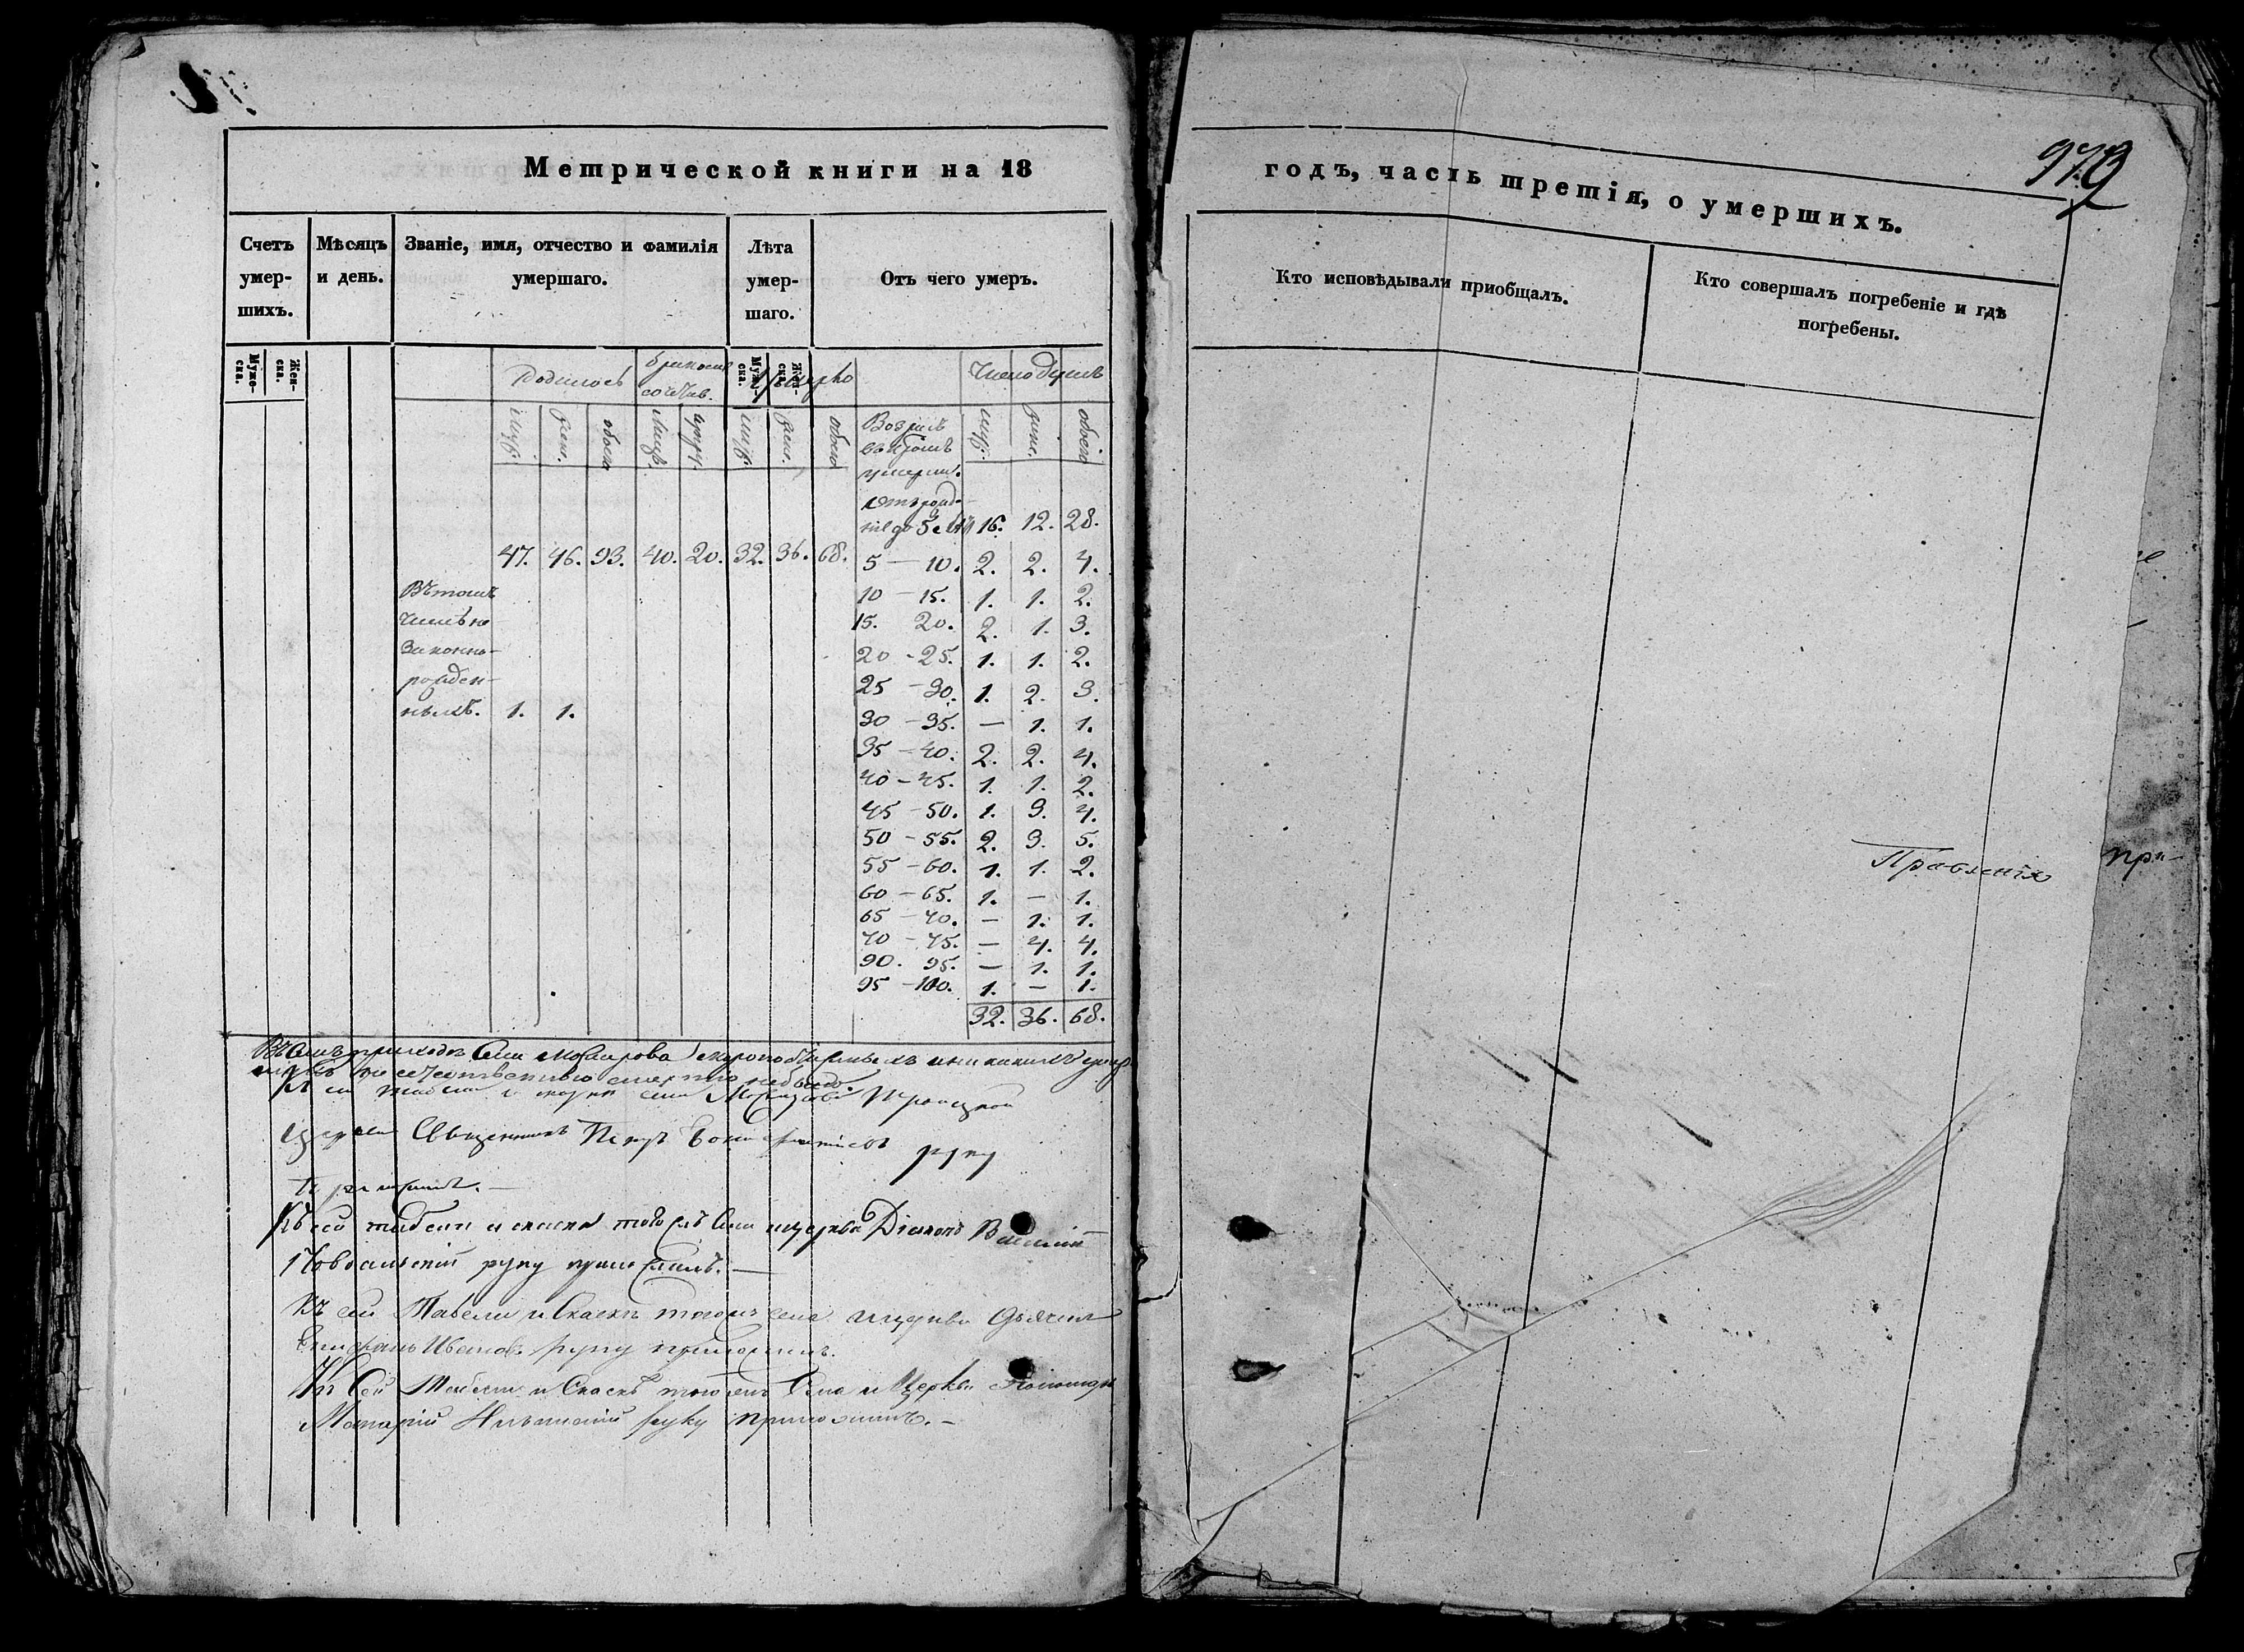 Метрической книги на 18
Счетъ умер-шихъ.
Мѣсяцъ и день.
Званіе, имя, отчество и фамилія умершаго.
Лѣта умер-шаго.
Отъ чего умеръ.
Муже-ска. Жен-ска.
Муже-ска. Жен-ска.
Родилось
бракомъ сочетав.
умерло
Число душъ
муж. жен. обоего
муж. жен. обоего
Возрастъ
въ коемъ
умерли.
муж. жен. обоего
отъ рожд-
нія до 5 лѣтъ 16. 12. 28.
47. 46. 93. 40. 20. 32. 36. 68.
5 — 10. 2. 2. 4.
10 — 15. 1. 1. 2.
15. 20. 2. 1. 3.
20 - 25. 1. 1. 2.
25 - 30. 1. 2. 3.
30 - 35. — 1. 1.
35 - 40. 2. 2. 4.
40 - 45. 1. 1. 2.
45 - 50. 1. 3. 4.
50 - 55. 2. 3. 5.
55 - 60. 1. 1. 2.
60 - 65. 1. — 1.
65 - 70. — 1. 1.
70 - 75. — 4. 4.
90. 95. — 1. 1.
95 - 100. 1. — 1.
32. 36. 68.
Въ томъ
числѣ не
законно-
рожден-
ныхъ. 1. 1.
Въ семъ приходѣ села скоропостижныхъ и никаких умер
смертію небыло.
Къ сей табели и села Троицкой
церкви Священникъ Петръ руку
Къ сей табели и скаскѣ тогожъ села и церкви Діаконъ Василій
руку приложилъ. —
Къ сей Табели и Скаскѣ тогожъ села и церкви Дьячекъ
Епифанъ Ивановъ руку приложилъ.
Къ Сей Табели и Скаскѣ тогожъ Села и Церкви Пономарь
Макарій руку приложилъ. —
годъ, часть третія, о умершихъ.
Кто исповѣдывали приобщалъ.
Кто совершалъ погребеніе и гдѣ погребены.
Правленія
при-